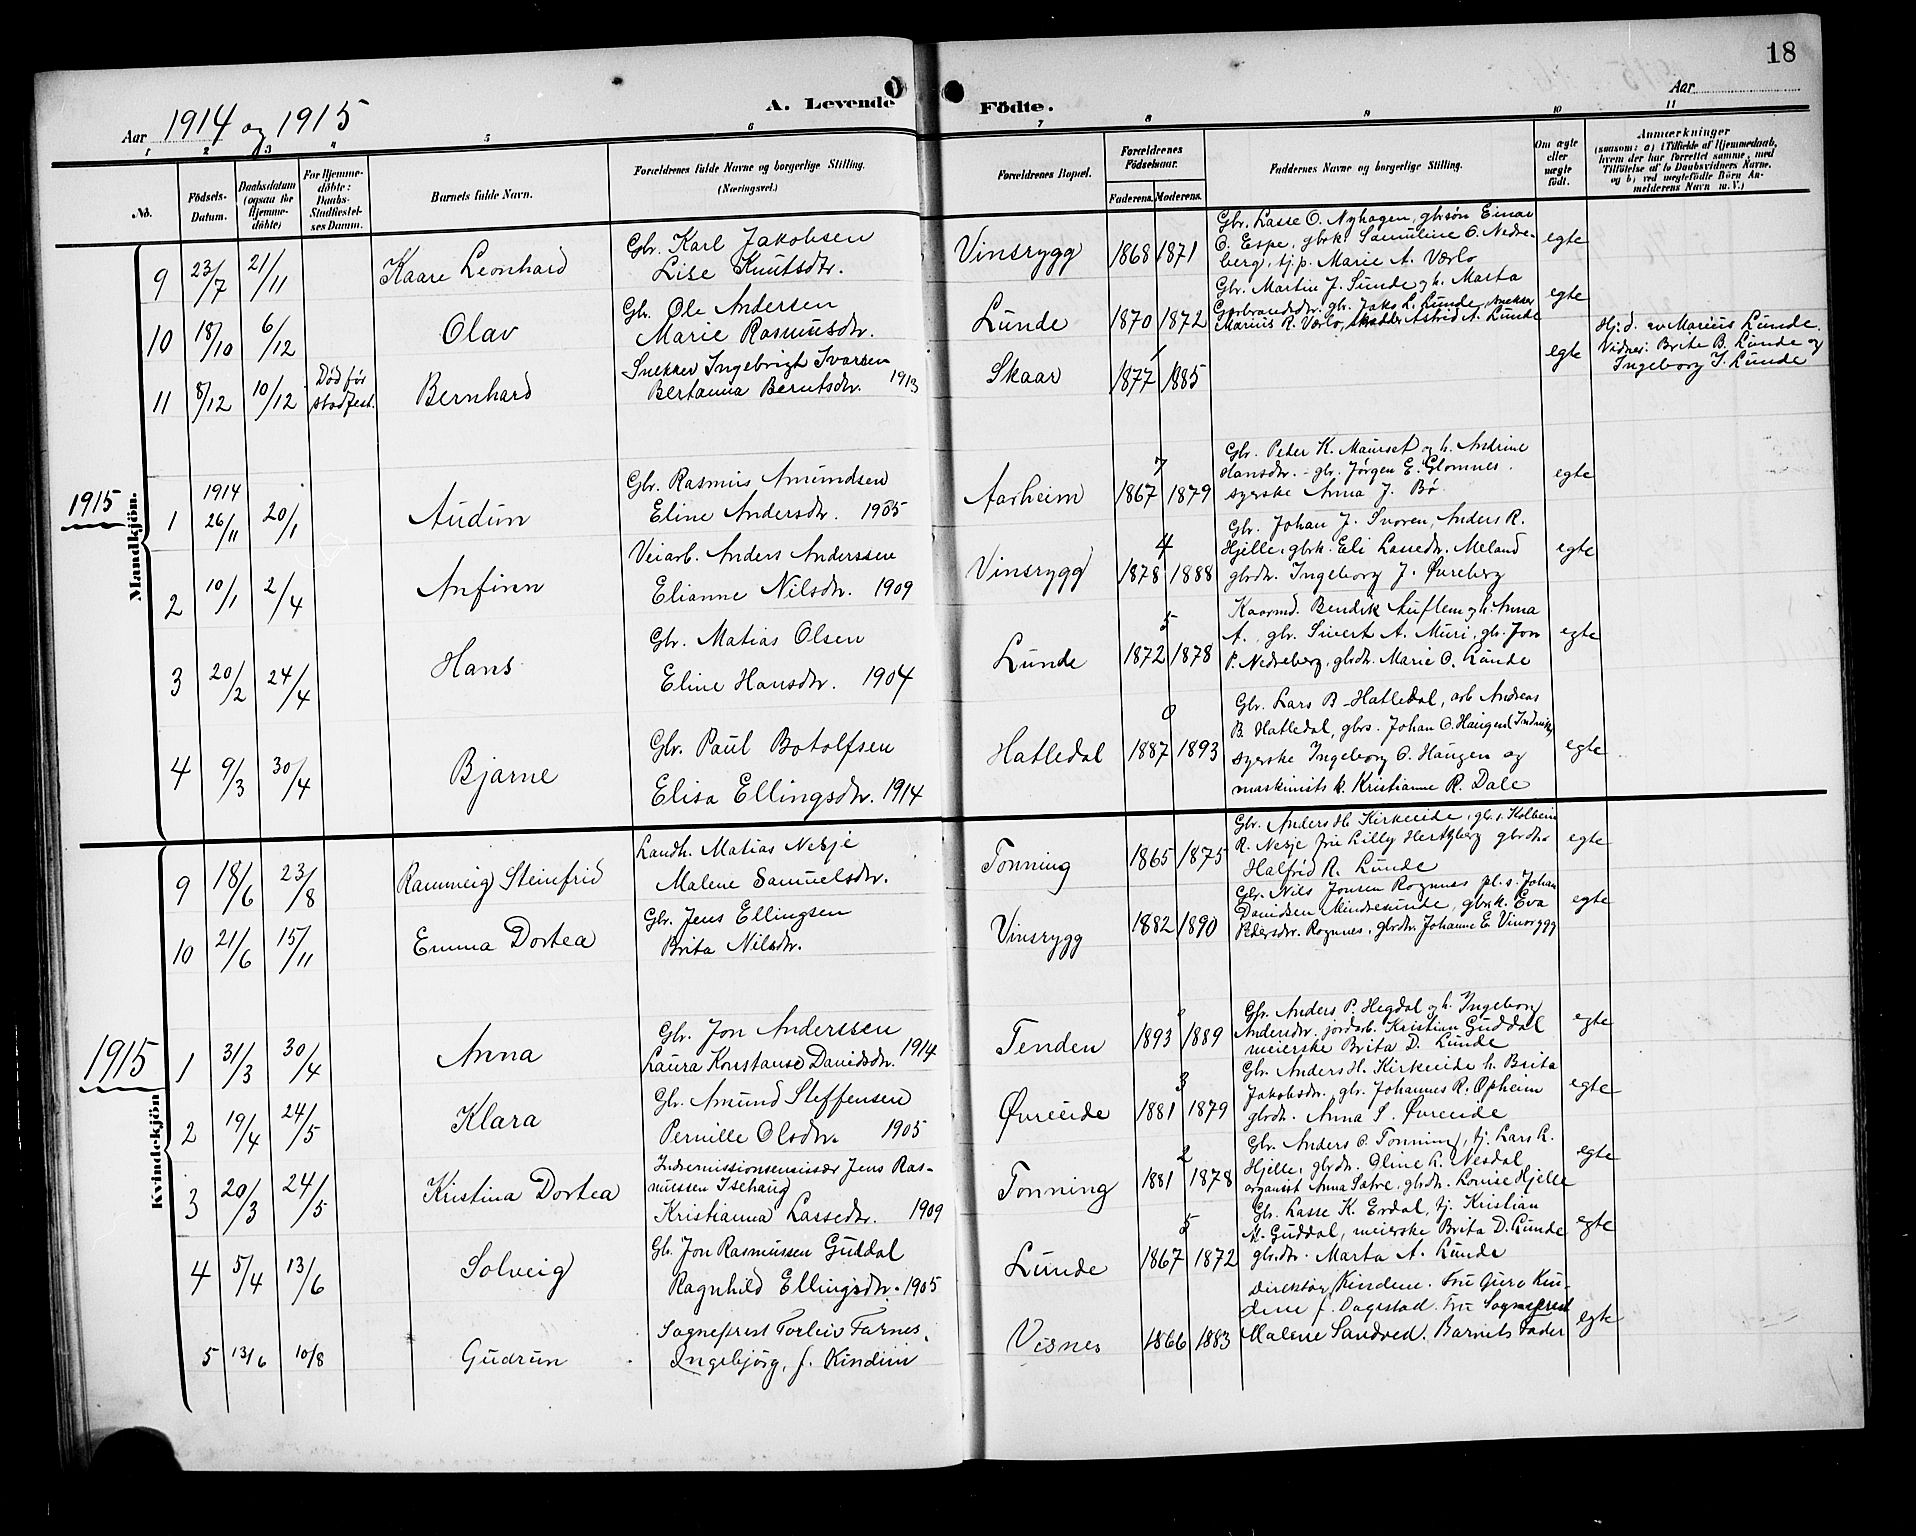 18
A. Levende Födte.
Aar 1914 og 1915
Aar
1 2 3 4 5 6 7 8 9 10 11
No.
Födsels-Datum.
Daabsdatum (ogsaa for Hjemme-döbte)
For Hjemme-döbte: Daabs-Stadfæstel-ses Datum.
Barnets fulde Navn.
Forældrenes fulde Navne og borgerlige Stilling. (Næringsvei.)
Forældrenes Bopæl.
Forældrenes Födselsaar.
Faderens. Moderens.
Faddernes Navne og borgerlige Stilling.
Om ægte eller uægte födt.
Anmærkninger
(saasom: a) i Tilfælde af Hjemmedaab, hvem der har forrettet samme, med Tilföielse af to Daabsvidners Navne, og b) ved uægtefödte Börn An-melderens Navn m. V.)
Mandkjön.
9 23/7 21/11 Kaare Leonhard
Gbr. Karl Jakobsen
Lise Knutsdtr.
Vinsrygg 1868 1871
Gbr. Lasse O. Nyhagen, gbrsön Einar
O. Espe, gbrk. Samuline O. Nedre-
berg, tj.p. Marie A. Værlo
egte
10 18/10 6/12 Olav
Gbr. Ole Andersen
Marie Rasmusdtr.
Lunde 1870 1872
Gbr. Martin J. Sunde og h. Marta
Garbrandsdtr. gbr. Jako L. Lunde, snekker
Marius R. Værlo, Astrid A. Lunde
egte
11 8/12 10/12 Död før stadfest. Bernhard
Snekker Ingebrigt Ivarsen
Bertanna Berntsdtr. 1913
Skaar 1 1877 1885
egte
Hj.d. av Marius Lunde.
Vidner: Brite B. Lunde og
Ingeborg J. Lunde
1915
1 1914 26/11 20/1 Audun
Gbr. Rasmus Amundsen
Eline Andersdtr. 1905
Aarheim 7 1867 1879
Gbr. Peter K. Maurset og h. Andrine
Hansdtr. - gbr. Jørgen E. Glomnes.
syerske Anna J. Bø
egte
2 10/1 2/4 Anfinn
Veiarb. Anders Anderssen
Elianne Nilsdtr. 1909
Vinsrygg 4 1878 1888
Gbr. Johan J. Svoren, Anders R.
Hjelle, gbrk. Eli Lassedtr. Meland
gbrdtr. Ingeborg J. Øvreberg
egte
3 20/2 24/4 Hans
Gbr. Matias Olsen
Eline Hansdtr. 1904
Lunde 5 1872 1878
Kaarmd. Bendik Auflem og h. Anna
A., gbr. Sivert A. Muri, gbr. Jon
P. Nedreberg, gbrdtr. Marie O. Lunde
egte
4 9/3 30/4 Bjarne
Gbr. Paul Botolfsen
Elisa Ellingsdtr. 1914
Hatledal 0 1887 1893
Gbr. Lars B. Hatledal, arb Andreas
B. Hatledal, gbrs. Johan O. Haugen
syerske Ingeborg O. Haugen og
maskinists k. Kristianne R. Dale
egte
Kvindekjön
9 18/6 23/8 Rannveig Steinfrid
Landh. Matias Nesje
Malene Samuelsdtr.
Tonning 1865 1875
Gbr. Anders H. Kirkeeide, gbr. s. Kolbein
R. Nesje Fru Lilly Hertzberg gbrdtr.
Halfrid R. Lunde
egte
10 21/6 15/11 Emma Dortea
Gbr. Jens Ellingsen
Brita Nilsdtr.
Vinsrygg 1882 1890
Gbr. Nils Jonsen Rognnes pl. s. Johan
Davidsen Mindresunde, gbrk. Eva
Pedersdtr. Rognnes, gbrdtr. Johanne E. Vinsrygg
egte
1915
1 31/3 30/4 Anna
Gbr. Jon Anderssen
Laura Konstanse Davidsdtr. 1914
Tenden 1893 1889
Gbr. Anders P. Hegdal og h. Ingeborg
Andersdtr. jordarb. Kristian Guddal
meierske Brita D. Lunde
egte
2 19/4 24/5 Klara
Gbr. Amund Steffensen
Pernille Olsdtr. 1905
Øvreeide 3 1881 1879
Gbr. Anders H. Kirkeeide h. Brita
Jakobsdtr., gbr. Johannes R. Opheim
gbrdtr. Anna S. Øvreeide
egte
3 20/3 24/5 Kristina Dortea
Indremissionsemissær Jens Ras-
mussen Isehaug
Kristianna Lassedtr. 1909
Tonning 2 1881 1878
Gbr. Anders O. Tonning, tj. Lars R.
Hjelle, gbrdtr. Oline L. Nesdal
organist Anna Satre, gbrdtr. Louise Hjelle
egte
4 5/4 13/6 Solveig
Gb. Jon Rasmussen Guddal
Ragnhild Ellingsdtr. 1905
Lunde 5 1867 1872
Gbr. Lasse K. Erdal, tj. Kristian
M. Guddal, meierske Brita D. Lunde
gbrdtr. Marta A. Lunde
egte
5 13/6 10/8 Gudrun
Sogneprest Torleiv Farnes.
Ingebjörg, f. Kindem
Visnes 1866 1883
Direktör Kindem. Fru Guro Kin-
dem f. Dagestad. Fru Sogneprest
Malene Sandved. Barnets Fader
egte